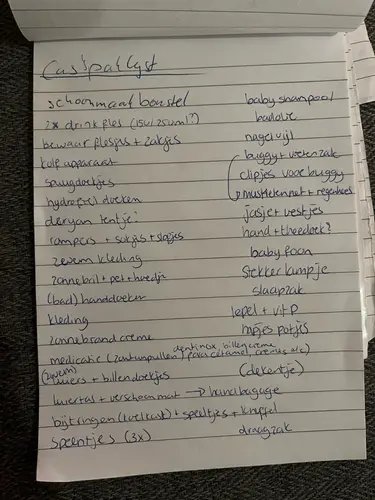 schoonmaak borstel
2x drinkfles (150/250ml?)
bewaar flesjes + zakjes
kolf apparaat
spuugdoekjes
hydrofiel doeken
deryan tentje!
rompers + sokjes + slofjes
zwem kleding
zonnebril + pet + hoedje
(bad) handdoeken
kleding
zonnebrand creme
dentinox, billencreme
medicatie (zoutampullen) paracetamol, cremes etc)
(zwem)
luiers + billendoekjes
luiertas + verschoonmat → handbagage
bijtringen (koelkast) + speeltjes + knuffel
speentjes (3x)
baby shampoo
badolie
nagelvijl
buggy + voetenzak
clipjes voor buggy
muskietennet + regenhoes
jasje + vestjes
hand + theedoek?
babyfoon
stekker lampje
slaapzak
lepel + vit D
hapjes potjes
(dekentje)
draagzak